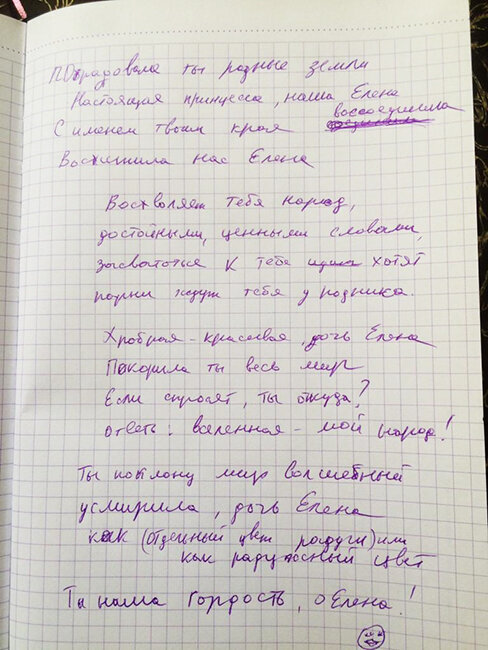 Порадовала ты родные земли
Настоящая принцесса, наша Елена
воссоединила
С именем твоим края
Восхитила нас Елена
Восхволяет тебя народ,
достойными, ценными словами,
засвататься к тебе хотят
парни ждут тебя у родника.
Храбрая-красивая, дочь Елена
Покорила ты весь мир
Если спросят, ты откуда?
ответь: вселенная - мой народ!
Ты поклону мир волшебный
усмирила, дочь Елена
как (отдельный цвет радуги) или
как радужный цвет
Ты наша гордость, о Елена!